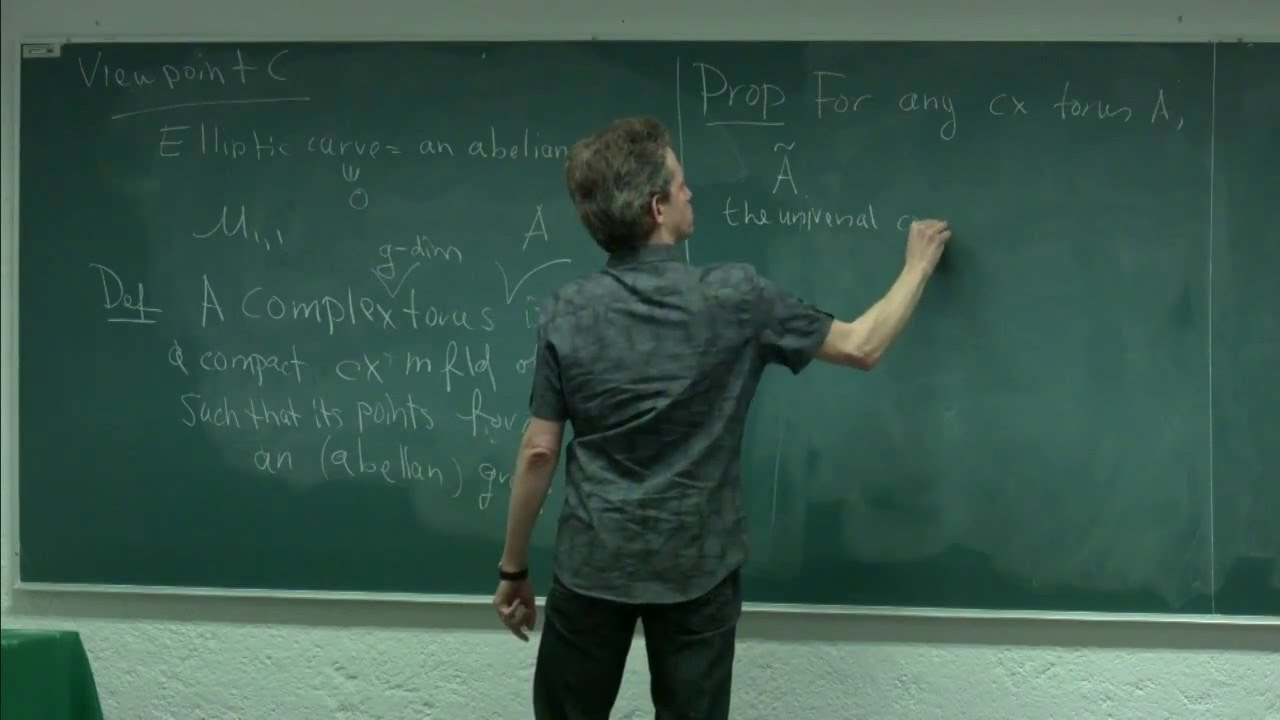 Viewpoint C
Elliptic curve = an abelian
0
M1,1
A
g-dim
Def A complex torus
a compact cx mfld
such that its points
an (abelian)
Prop For any cx torus A,
Ã
the universal